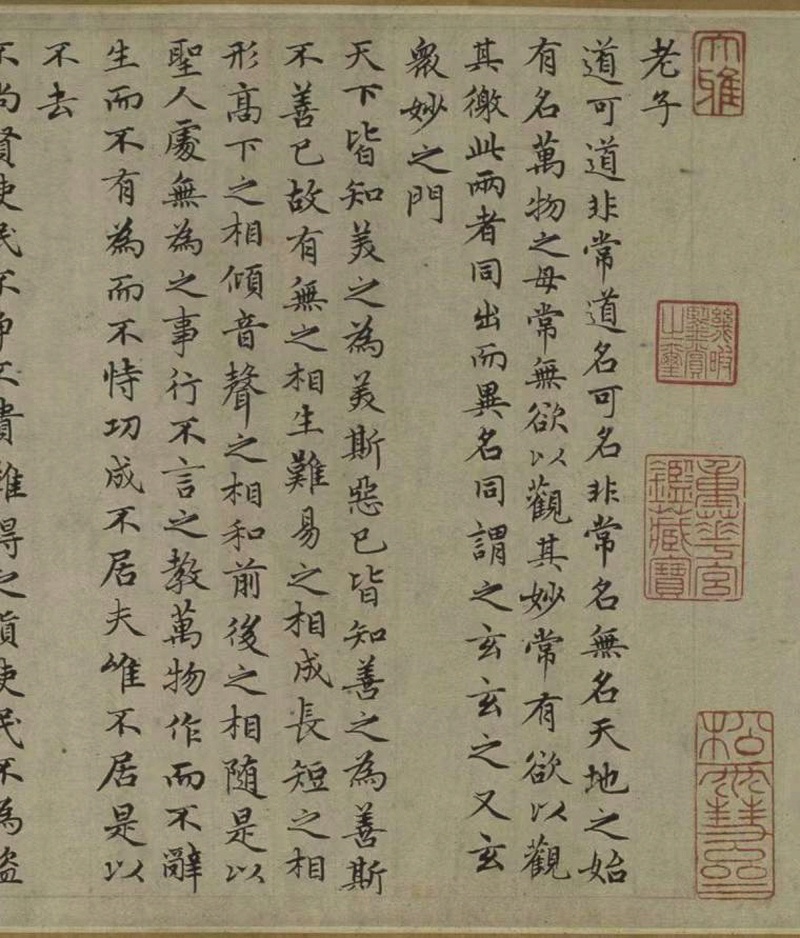 大雅
幾暇鑒賞之璽
重華宮鑑藏寶
老子
道可道非常道名可名非常名無名天地之始
有名萬物之母常無欲以觀其妙常有欲以觀
其徼此兩者同出而異名同謂之玄玄之又玄
衆妙之門
天下皆知美之為美斯惡已皆知善之為善斯
不善已故有無之相生難易之相成長短之相
形高下之相傾音聲之相和前後之相随是以
聖人處無為之事行不言之教萬物作而不辭
生而不有為而不恃功成不居夫唯不居是以
不去
不尚賢使民不爭不貴難得之貨使民不為盜